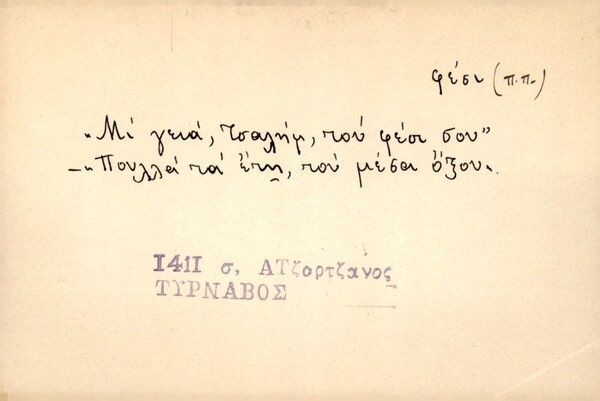 φέσι (π.π.)
"Μί γειά, Τσαλήμ, τού φέσι σου"
—"Πουλλά τά έτη, τού μέσα όξου".
1411 σ, ΑΤζαρτζανος
ΤΥΡΝΑΒΟΣ